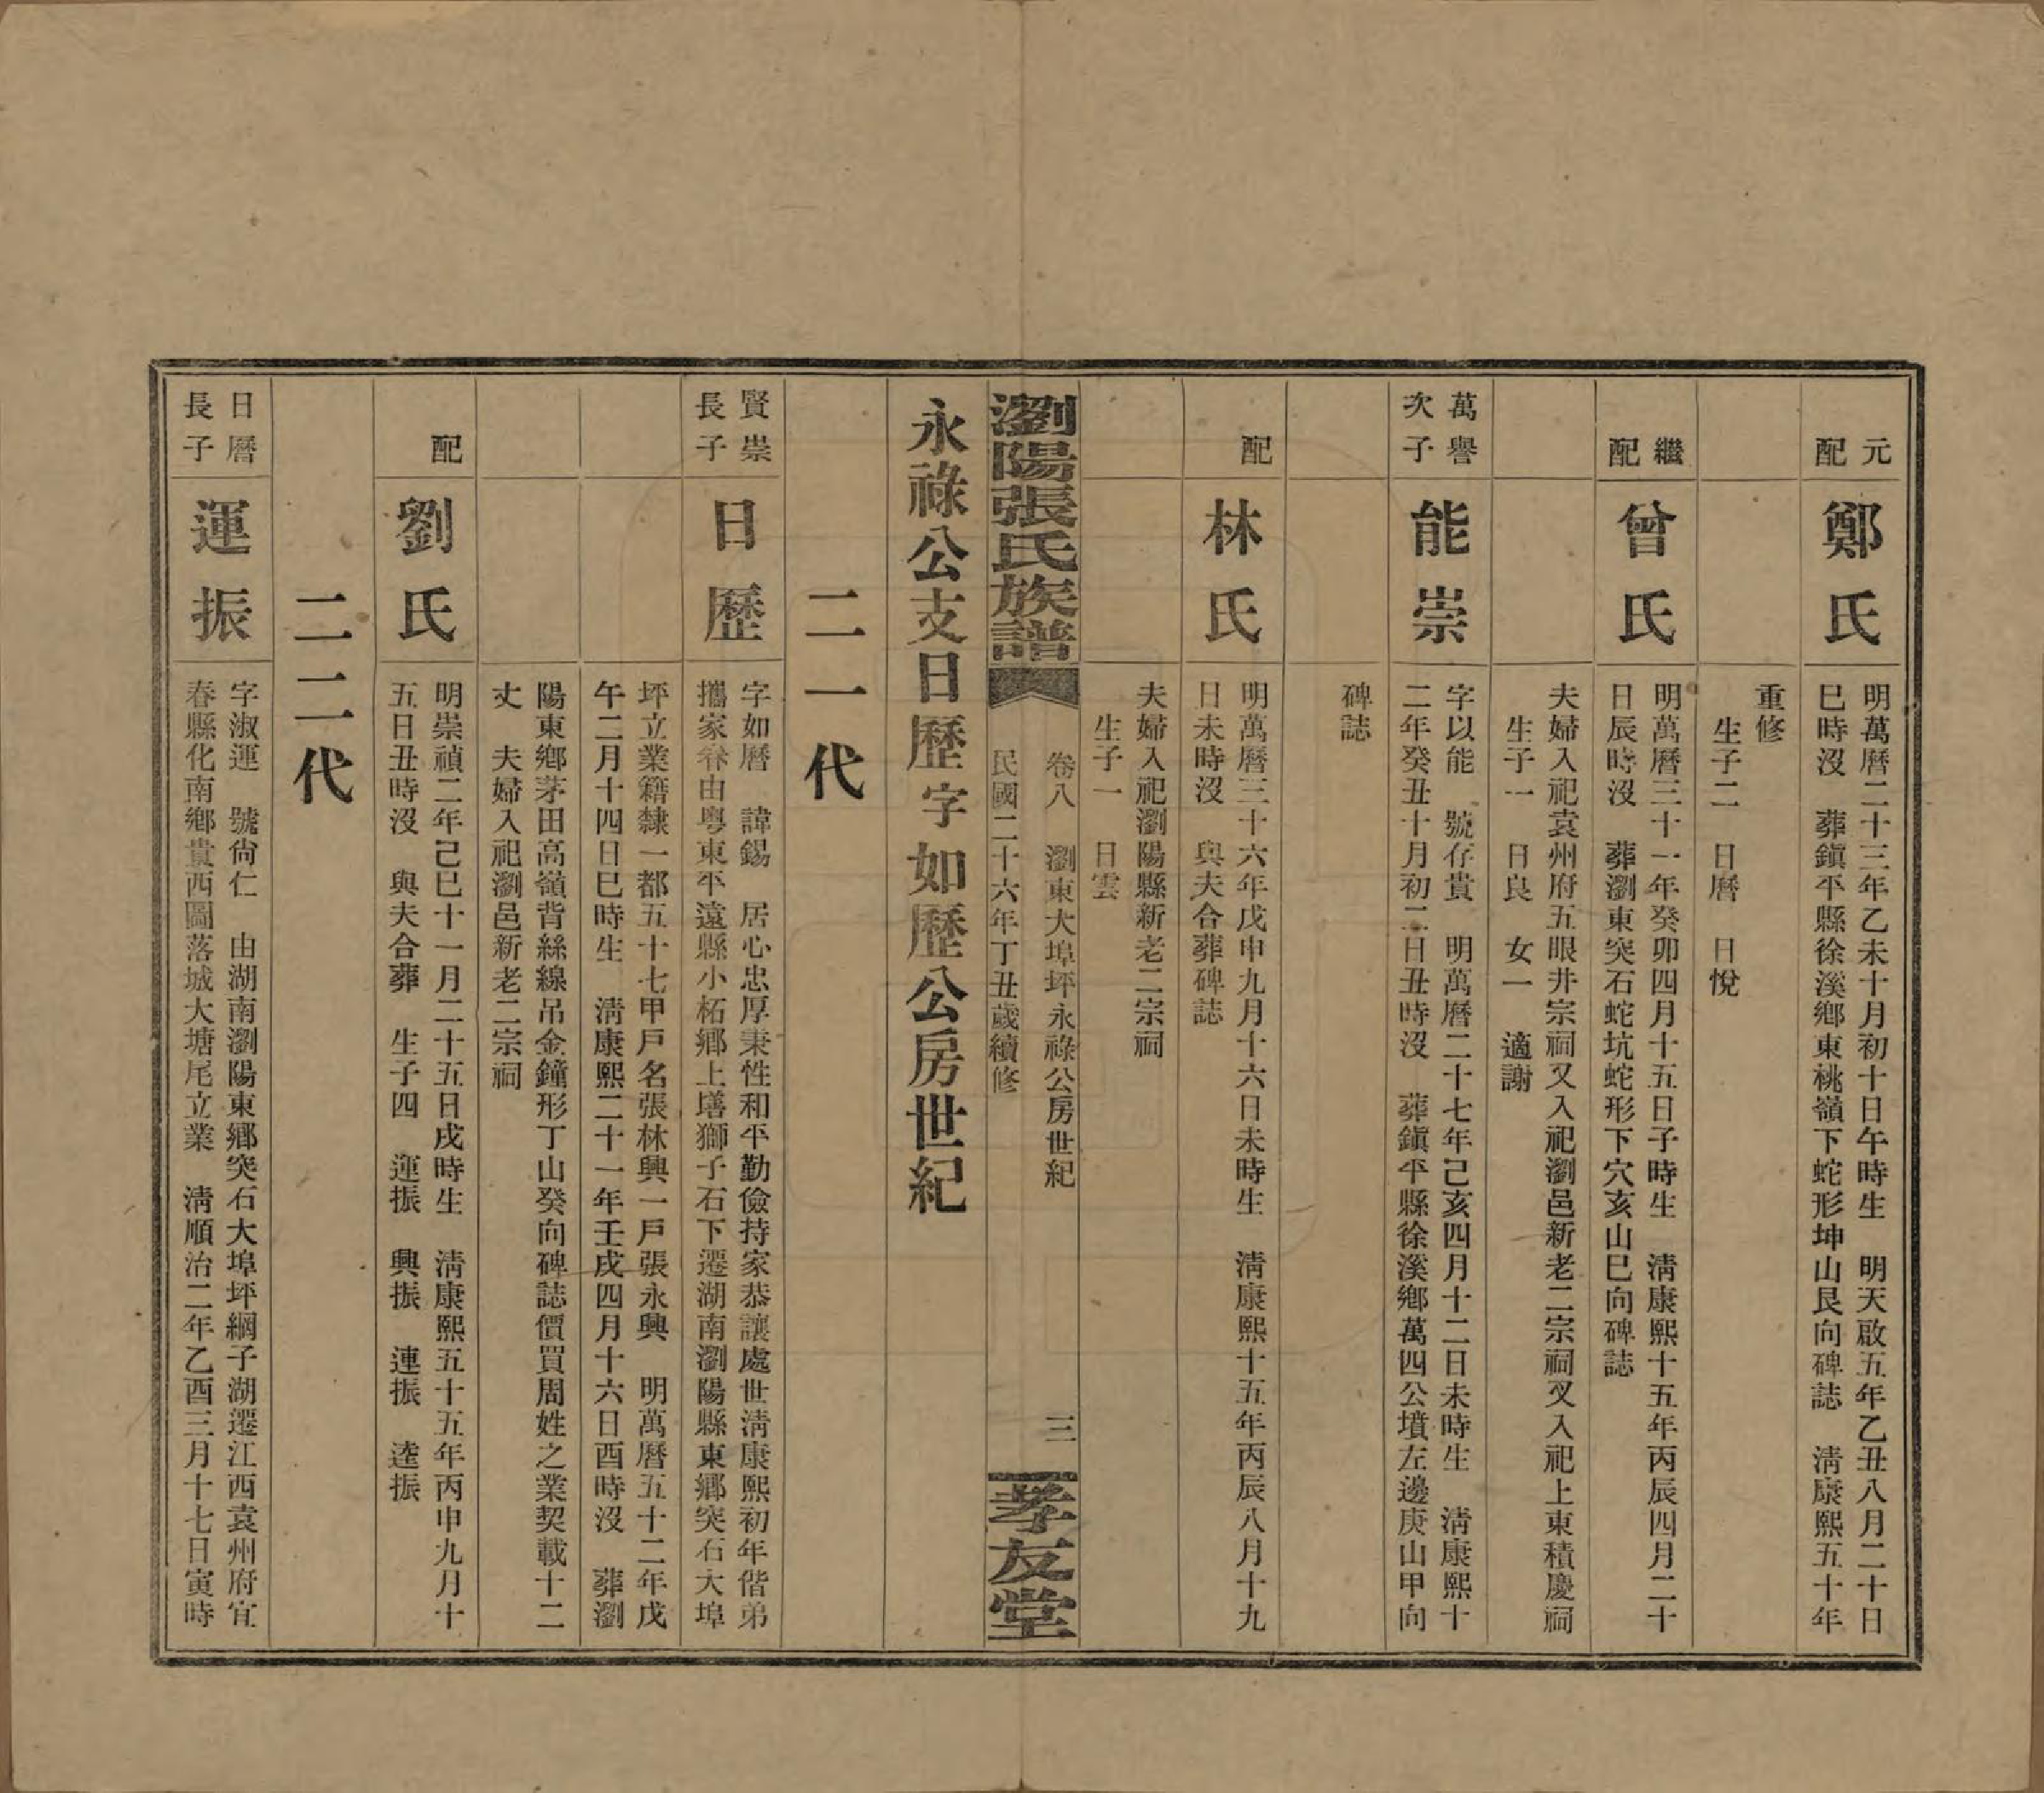 元配
鄭氏
明萬曆二十三年乙未十月初十日午時生　明天啟五年乙丑八月二十日
巳時沒　葬鎮平縣徐溪鄉東桃嶺下蛇形坤山艮向碑誌　淸康熙五十年
重修
生子二　日曆　日悅
繼配
曾氏
明萬曆三十一年癸卯四月十五日子時生　淸康熙十五年丙辰四月二十
日辰時沒　葬瀏東突石蛇坑蛇形下穴亥山巳向碑誌
夫婦入祀袁州府五眼井宗祠又入祀瀏邑新老二宗祠又入祀上東積慶祠
生子一　日良　女一　適謝
萬譽次子
能崇
字以能　號存貴　明萬曆二十七年己亥四月十二日未時生　淸康熙十
二年癸丑十月初二日丑時沒　葬鎮平縣徐溪鄉萬四公墳左邊庚山甲向
碑誌
配
林氏
明萬曆三十六年戊申九月十六日未時生　淸康熙十五年丙辰八月十九
日未時沒　與夫合葬碑誌
夫婦入祀瀏陽縣新老二宗祠
生子一　日雲
瀏陽張氏族譜
卷八　瀏東大埠坪永祿公房世紀　三
民國二十六年丁丑歲續修
孝友堂
永祿公支日歷字如歷公房世紀
二一代
賢崇長子
日歷
字如曆　諱錫　居心忠厚秉性和平勤儉持家恭讓處世淸康熙初年偕弟
攜家眷由粵東平遠縣小柘鄉上墡獅子石下遷湖南瀏陽縣東鄉突石大埠
坪立業籍隸一都五十七甲戶名張林興一戶張永興　明萬曆五十二年戊
午二月十四日巳時生　淸康熙二十一年壬戌四月十六日酉時沒　葬瀏
陽東鄉茅田高嶺背絲線吊金鐘形丁山癸向碑誌價買周姓之業契載十二
丈　夫婦入祀瀏邑新老二宗祠
配
劉氏
明崇禎二年己巳十一月二十五日戌時生　淸康熙五十五年丙申九月十
五日丑時沒　與夫合葬　生子四　運振　興振　連振　逵振
二二代
日曆長子
運振
字淑運　號尙仁　由湖南瀏陽東鄉突石大埠坪綱子湖遷江西袁州府宜
春縣化南鄉貴西圖落城大塘尾立業　淸順治二年乙酉三月十七日寅時